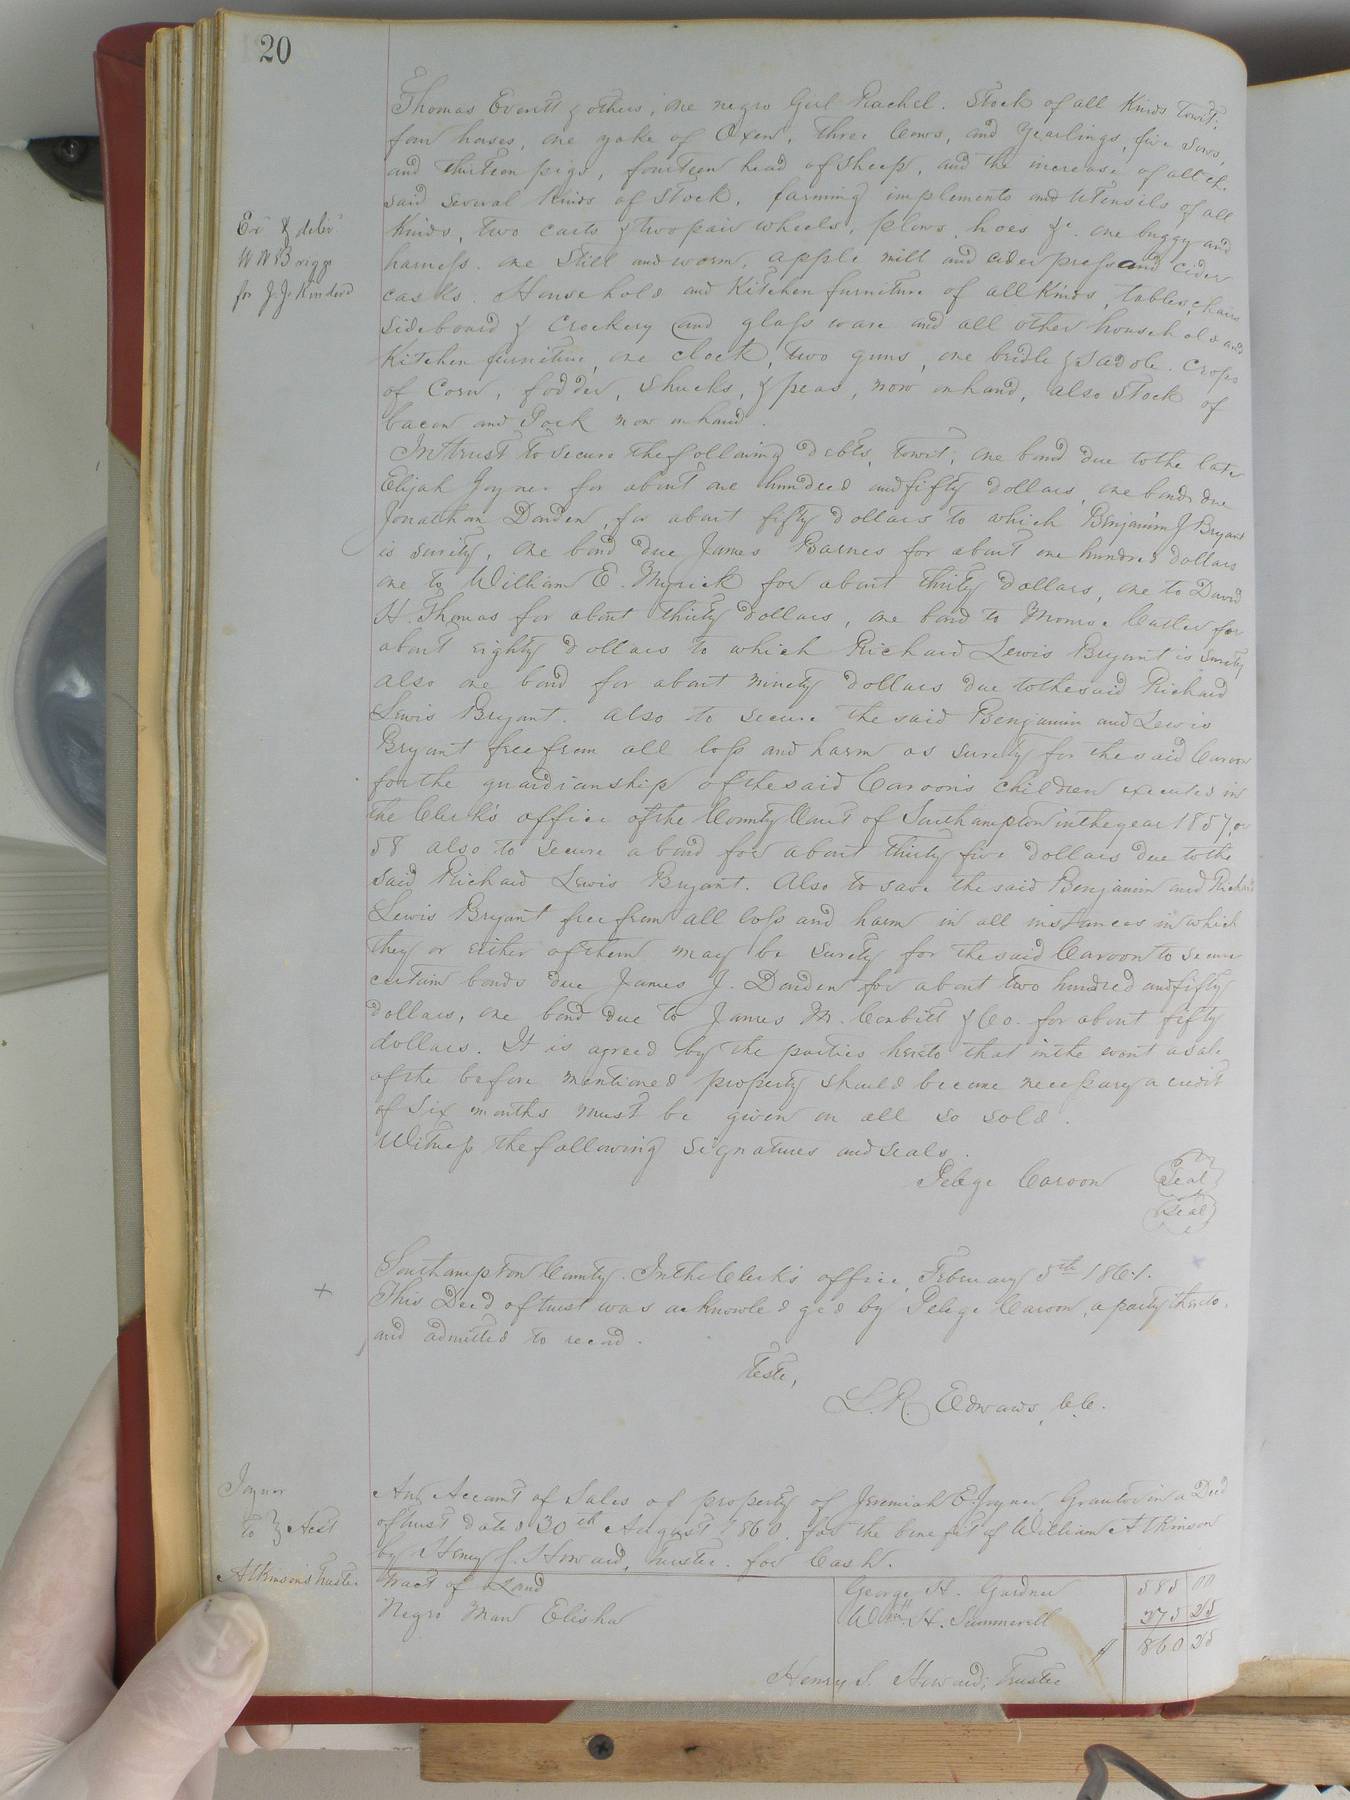 20
Thomas Everett & others, one negro Girl Rachel. Stock of all Kinds towit;
four horses, one yoke of Oxen, three Cows, and Yearlings, five Sows,
and thirteen pigs, fourteen head of sheep, and the increase of all the
said several Kinds of Stock, farming implements and utensils of all
Kinds, two carts & two pair wheels, plows, hoes &c. one buggy and
harness. one Still and worm, apple mill and cider press and cider
casks. Household and Kitchen furniture of all Kinds, tables, chairs
Sideboard & Crockery and glass ware and all other household and
Kitchen furniture, one clock, two guns, one bridle & Saddle. Crops
of Corn, fodder, Shucks, & peas, now on hand, also Stock of
bacon and Pork now on hand.
Ex. & deliv.
W W Briggs
for J. J. Kindred
In trust to secure the following debts, towit; one bond due to the late
Elijah Joyner for about one hundred and fifty dollars, one bond due
Jonathan Darden, for about fifty dollars to which Benjamin J Bryant
is surity, one bond due James Barnes for about one hundred dollars
one to William E. Myrick for about thirty dollars, one to David
H. Thomas for about thirty dollars, one bond to Monroe Carter for
about eighty dollars to which Richard Lewis Bryant is Surity
also one bond for about ninety dollars due to the said Richard
Lewis Bryant. also to secure the said Benjamin and Lewis
Bryant free from all loss and harm as surity for the said Caroon
for the guardianship of the said Caroon's children executed in
the Clerk's office of the County Court of Southampton in the year 1857, or
58 also to secure a bond for about thirty five dollars due to the
said Richard Lewis Bryant. Also to save the said Benjamin and Richard
Lewis Bryant free from all loss and harm in all instances in which
they or either of them may be surity for the said Caroon to secure
certain bonds due James J. Darden for about two hundred and fifty
dollars, one bond due to James M. Corbitt & Co. for about fifty
dollars. It is agreed by the parties hereto that in the event a sale
of the before mentioned property should become necessary a credit
of Six months must be given on all so sold.
Witness the following signatures and seals.
Pelege Caroon Seal
Seal
Southampton County. In the Clerk's office, February 5th 1861.
This Deed of trust was acknowledged by Pelege Caroon, a party thereto,
and admitted to record.
Teste,
L. R. Edwards, C.C.
Joyner
to } Acct
Atkinson's Trustee
An Account of Sales of property of Jeremiah E. Joyner, Grantor in a Deed
of trust dated 30th August 1860. for the benefit of William Atkinson
by Henry S. Howard, Trustee. for Cash.
Tract of Land George H. Gardner 585 00
Negro Man Elisha Wm. H. Summerell 275 25
$ 860 25
Henry S. Howard, Trustee